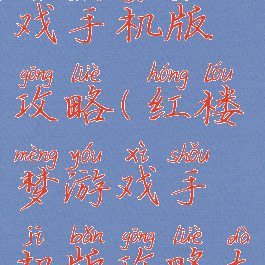 戏手机版
gōng lüè hóng lóu
攻略(红楼
mèng yóu xì shǒu
梦游戏手
jī bǎn gōng lüè dà
机版攻略大